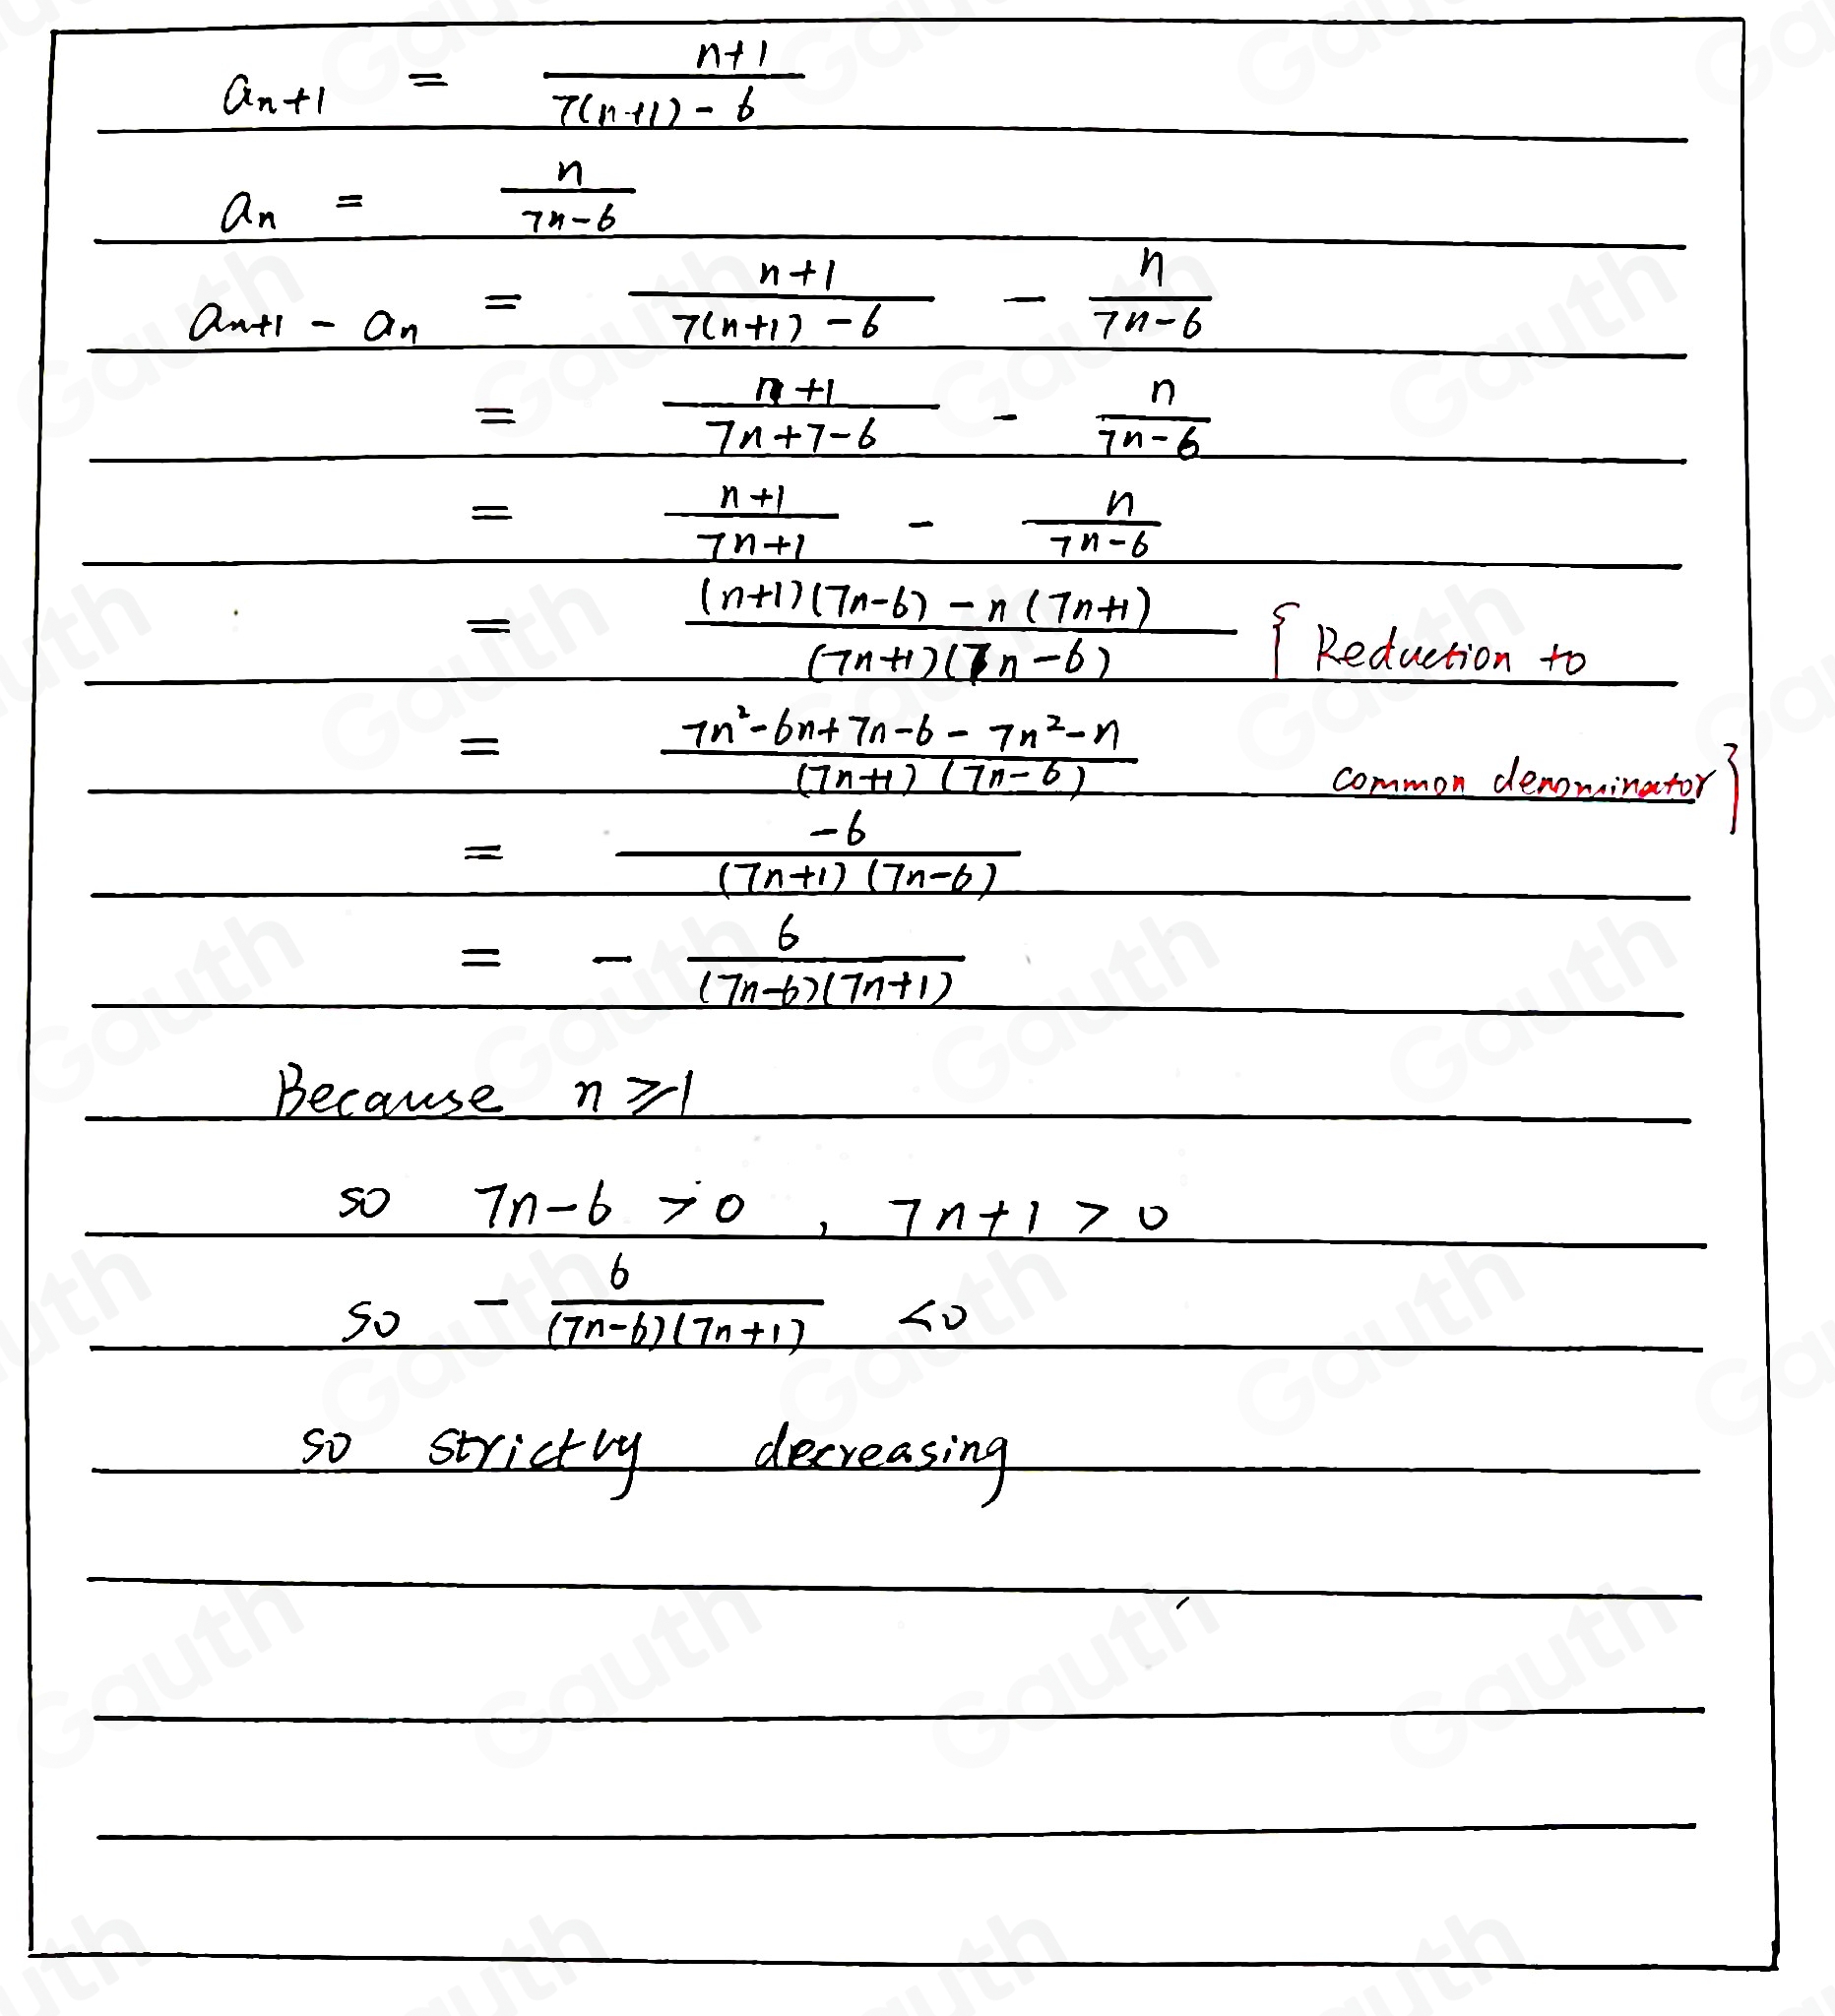 aₙ₊₁ = (n+1)/(7(n+1)-6)
aₙ = n/(7n-6)
aₙ₊₁ - aₙ = (n+1)/(7(n+1)-6) - n/(7n-6)
= (n+1)/(7n+7-6) - n/(7n-6)
= (n+1)/(7n+1) - n/(7n-6)
= ((n+1)(7n-6) - n(7n+1))/((7n+1)(7n-6)) { Reduction to
= (7n²-6n+7n-6-7n²-n)/((7n+1)(7n-6)) common denominator }
= -6/((7n+1)(7n-6))
= - 6/((7n-6)(7n+1))
Because n ⩾ 1
so 7n-6 > 0 , 7n+1 > 0
so - 6/((7n-6)(7n+1)) < 0
so strictly decreasing
Gauth